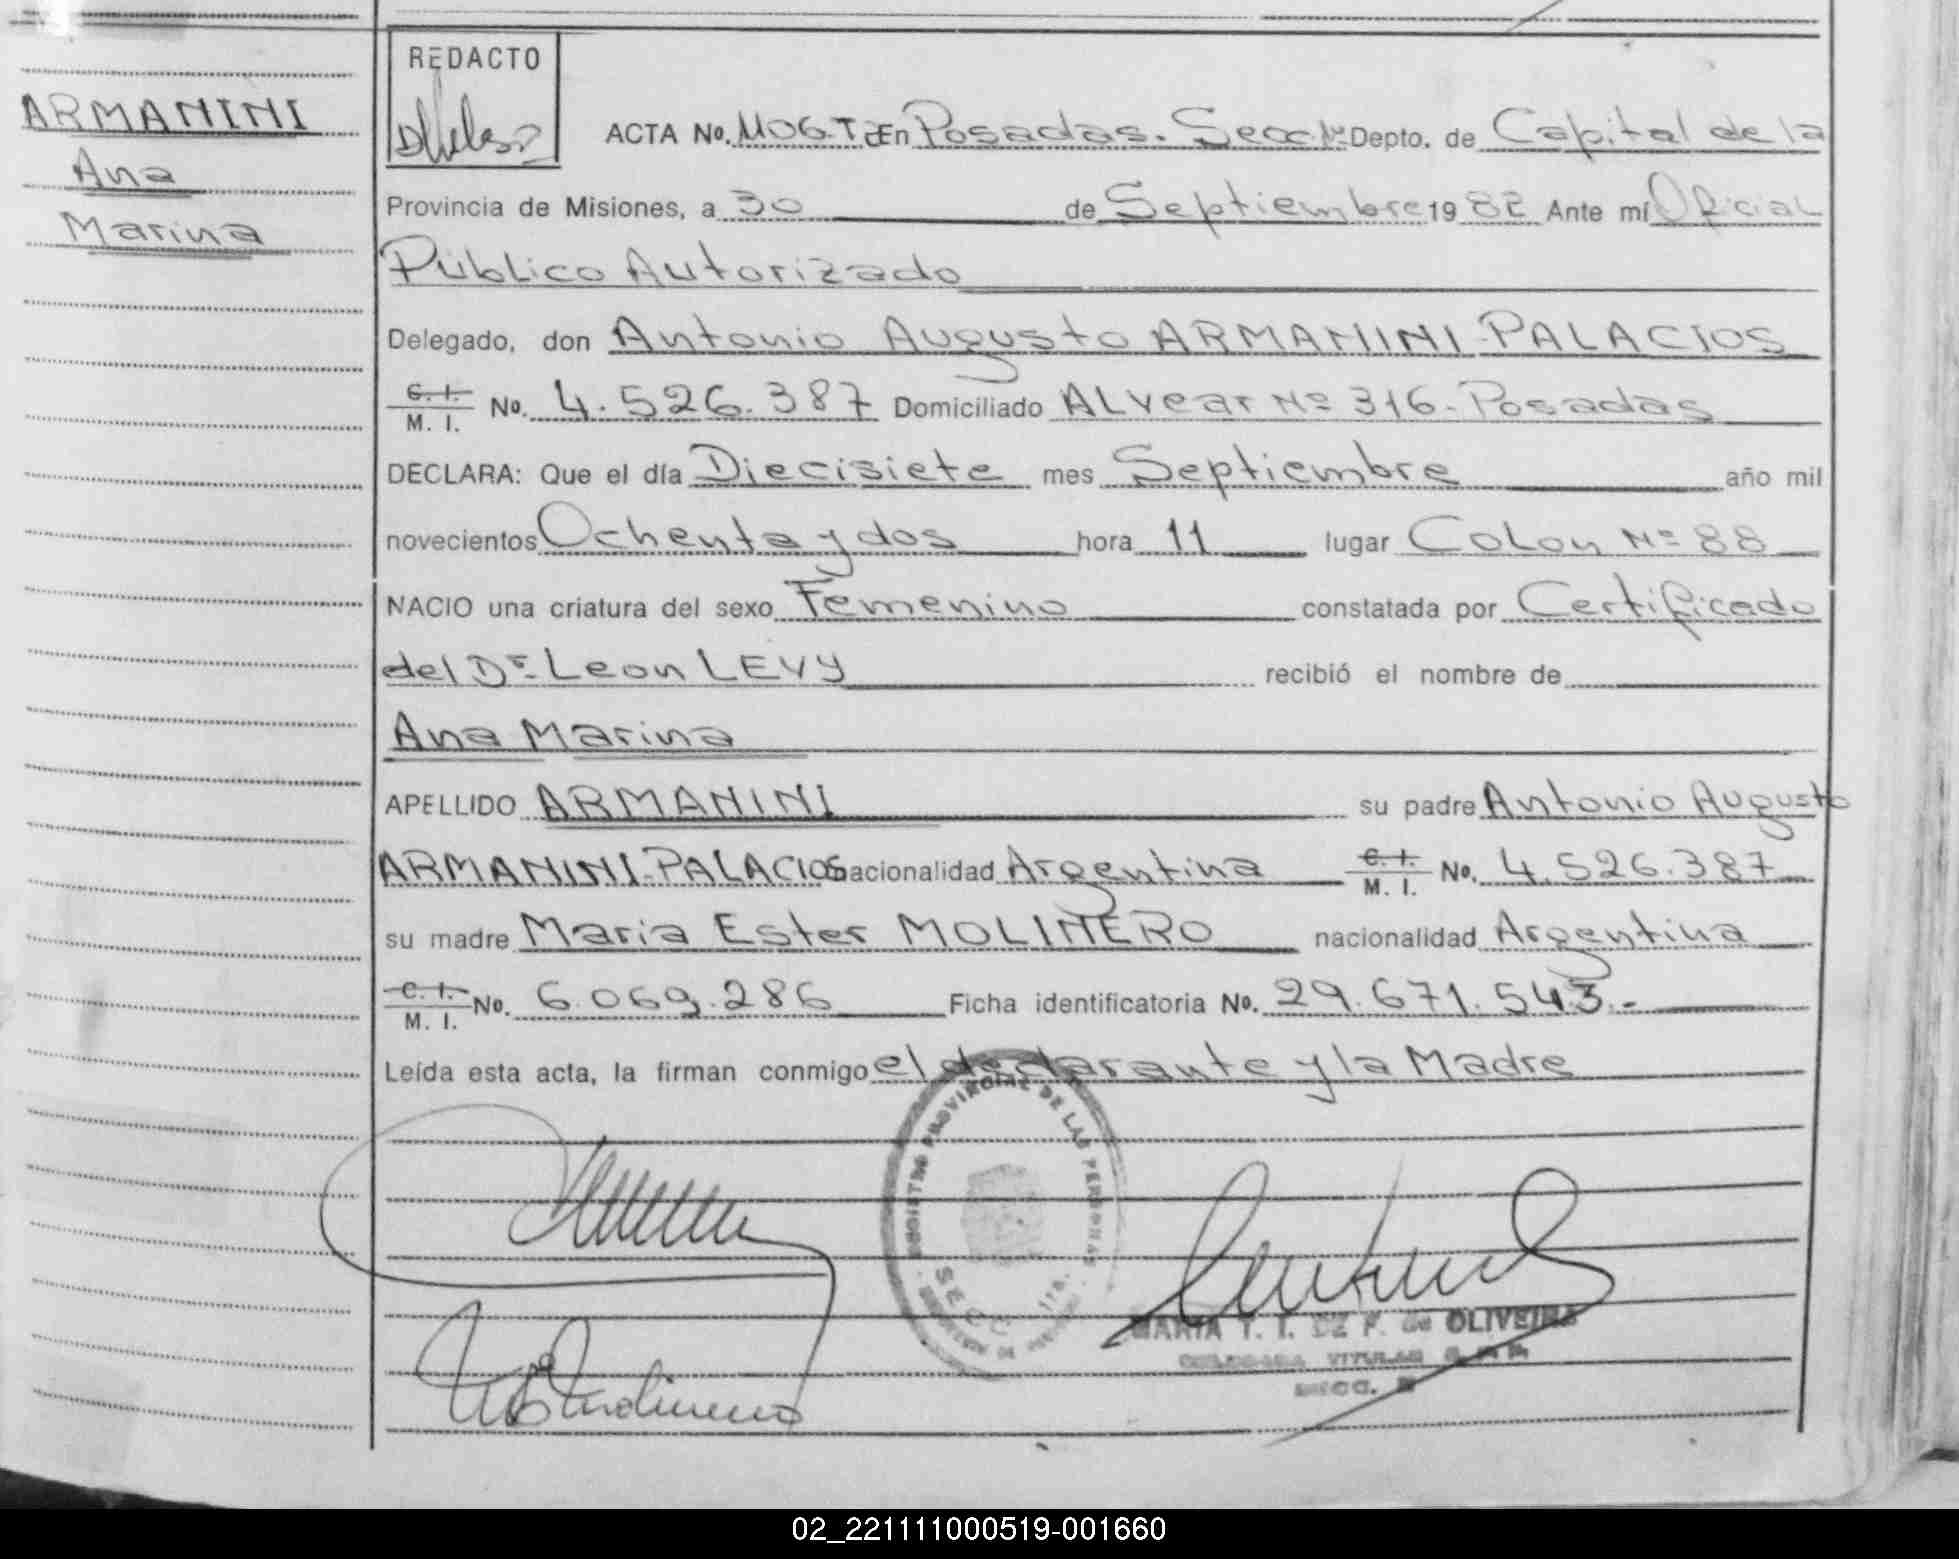 ARMANINI
Ana
Marina
REDACTO
ACTA No. 1106.T En Posadas. Secc. 1ª Depto. de Capital de la
Provincia de Misiones, a 30 de Septiembre 19 82 Ante mí Oficial
Público Autorizado
Delegado, don Antonio Augusto ARMANINI-PALACIOS
C. I. M. I. No. 4.526.387 Domiciliado ALvear Nº 316-Posadas
DECLARA: Que el día Diecisiete mes Septiembre año mil
novecientos Ochenta y dos hora 11 lugar Colon Nº 88
NACIO una criatura del sexo Femenino constatada por Certificado
del Dr. Leon LEVY recibió el nombre de
Ana Marina
APELLIDO ARMANINI su padre Antonio Augusto
ARMANINI-PALACIOS nacionalidad Argentina C. I. M. I. No. 4.526.387
su madre Maria Ester MOLINERO nacionalidad Argentina
C. I. M. I. No. 6.069.286 Ficha identificatoria No. 29.671.543.-
Leída esta acta, la firman conmigo el declarante y la Madre
REGISTRO PROVINCIAL DE LAS PERSONAS
SECC. 1ra.
MARIA T. I. DE F. de OLIVEIRA
DELEGADA TITULAR
SECC.
02_221111000519-001660